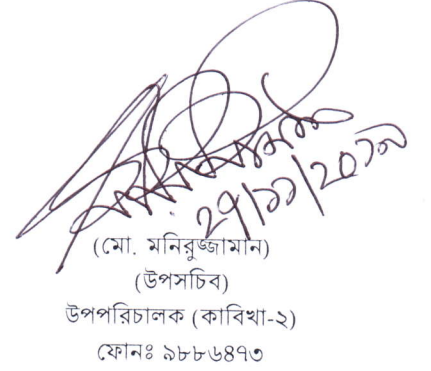 ২৭/১১/২০১৯
(মো. মনিরুজ্জামান)
(উপসচিব)
উপপরিচালক (কাবিখা-২)
ফোনঃ ৯৮৮৬৪৭৩